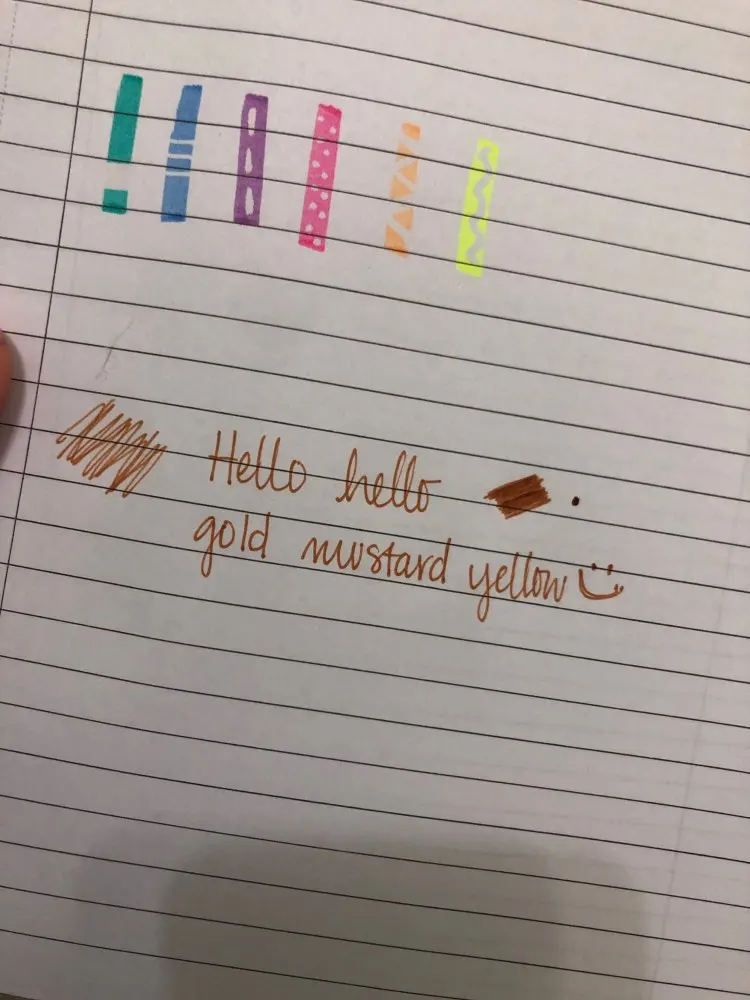 Hello hello
gold mustard yellow